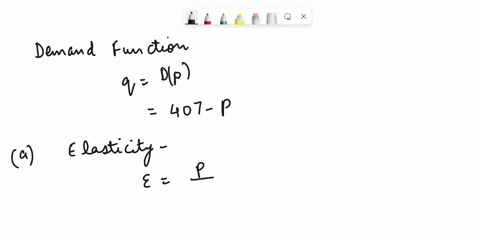 Demand Function
q = D(p)
= 407 - P
(a) Elasticity -
ε = P